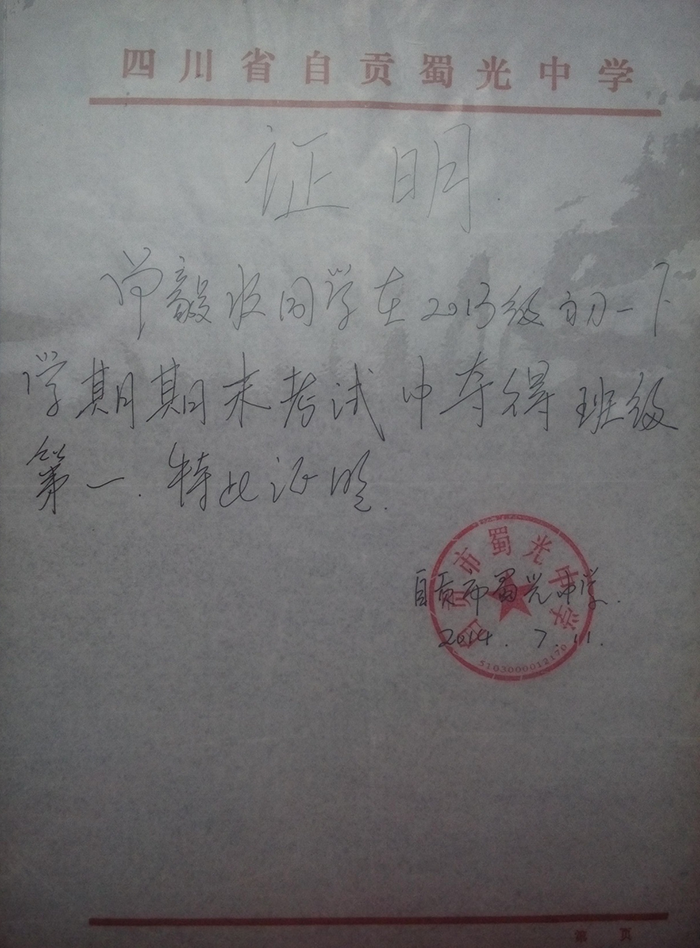 四川省自贡蜀光中学
证明
毅同学在2013级初一下
学期期末考试中夺得班级
第一.特此证明.
自贡市蜀光中学
自贡市蜀光中学.
2014.7.11.
5103000012170
第 页